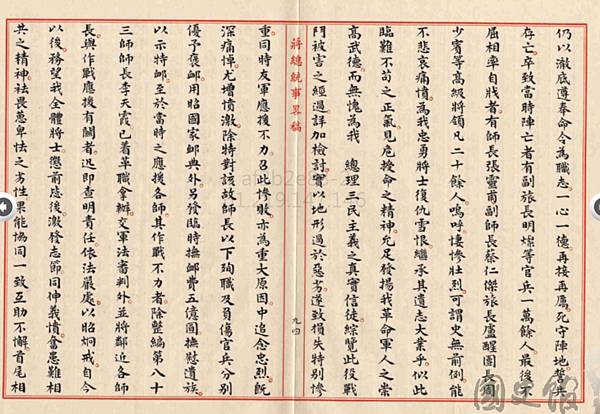 仍以澈底遵奉命令為職志一心一德再接再厲死守陣地誓共
存亡卒致當時陣亡者有副旅長明燦等官兵一萬餘人最後不
屈相率自戕者有師長張靈甫副師長蔡仁傑旅長盧醒團長周
少賓等高級將領凡二十餘人嗚呼悽慘壯烈可謂史無前例能
不悲哀痛憤為我忠勇將士復仇雪恨繼承其遺志大業乎似此
臨難不苟之正氣見危授命之精神允足發揚我革命軍人之崇
高武德而無愧為我　總理三民主義之真實信徒綜覽此役戰
鬥被害之經過詳加檢討實以地形過於惡劣遂致損失特別慘
蔣總統事畧稿
九四
重同時友軍應援不力召此慘敗亦為重大原因中追念忠烈既
深痛悼尤增憤激除特對該故師長以下殉職及負傷官兵分別
優予褒卹用昭國家卹典外另發臨時撫卹費五億圓撫慰遺族
以示特卹至於當時之應援各師其作戰不力者除整編第八十
三師師長李天霞已着革職拿辦交軍法審判外並將鄰近各師
長與作戰應援有關者迅即查明責任依法嚴處以昭炯戒自今
以後務望我全體將士懲前毖後激發志節同伸義憤奮患難相
共之精神祛畏葸卑怯之劣性果能協同一致互助不懈首尾相
國史館